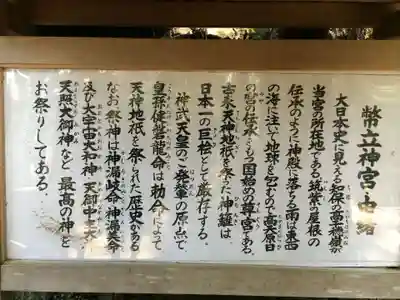 幣立神宮由緒
大日本史に見える知保の高橋嶽が
当宮の所在地である。筑紫の屋根の
伝承のように神殿に落ちる雨は東西
の海に注いで地球を包むので、高天原日
の宮の伝承をもつ国始めの尊宮である。
古来天神地祇を祭った神籬は、
日本一の巨桧として厳存する。
神武天皇のご発輦の原点で、
皇孫健磐龍命は勅命によって
天神地祇を祭られた歴史がある
なお、祭神は神漏岐命・神漏美命
及び大宇宙大和神・天御中主大神・
天照大御神など、最高の神を
お祭りしてある。